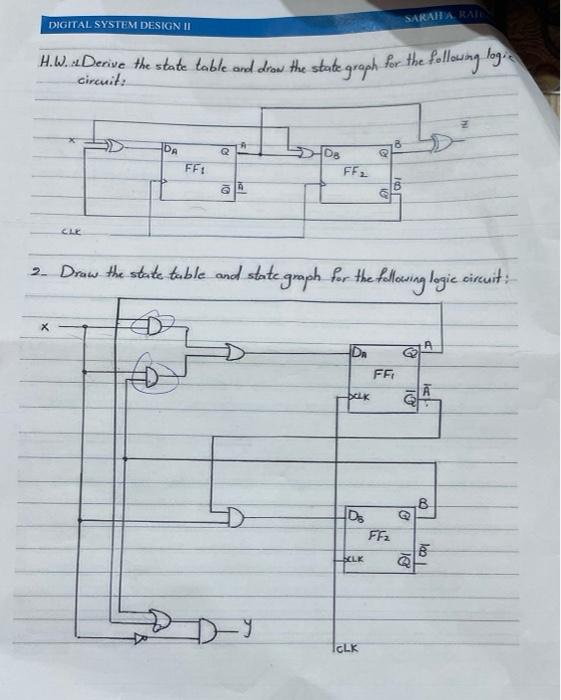 DIGITAL SYSTEM DESIGN II
SARAH A.
H.W. :1 Derive the state table and draw the state graph for the following logic
circuit:
x
DA Q A
FF1
Q̅ A̅
DB Q B
FF2
Q̅ B̅
Z
CLK
2- Draw the state table and state graph for the following logic circuit:
x
DA Q A
FF1
CLK Q̅ A̅
DB Q B
FF2
CLK Q̅ B̅
y
CLK